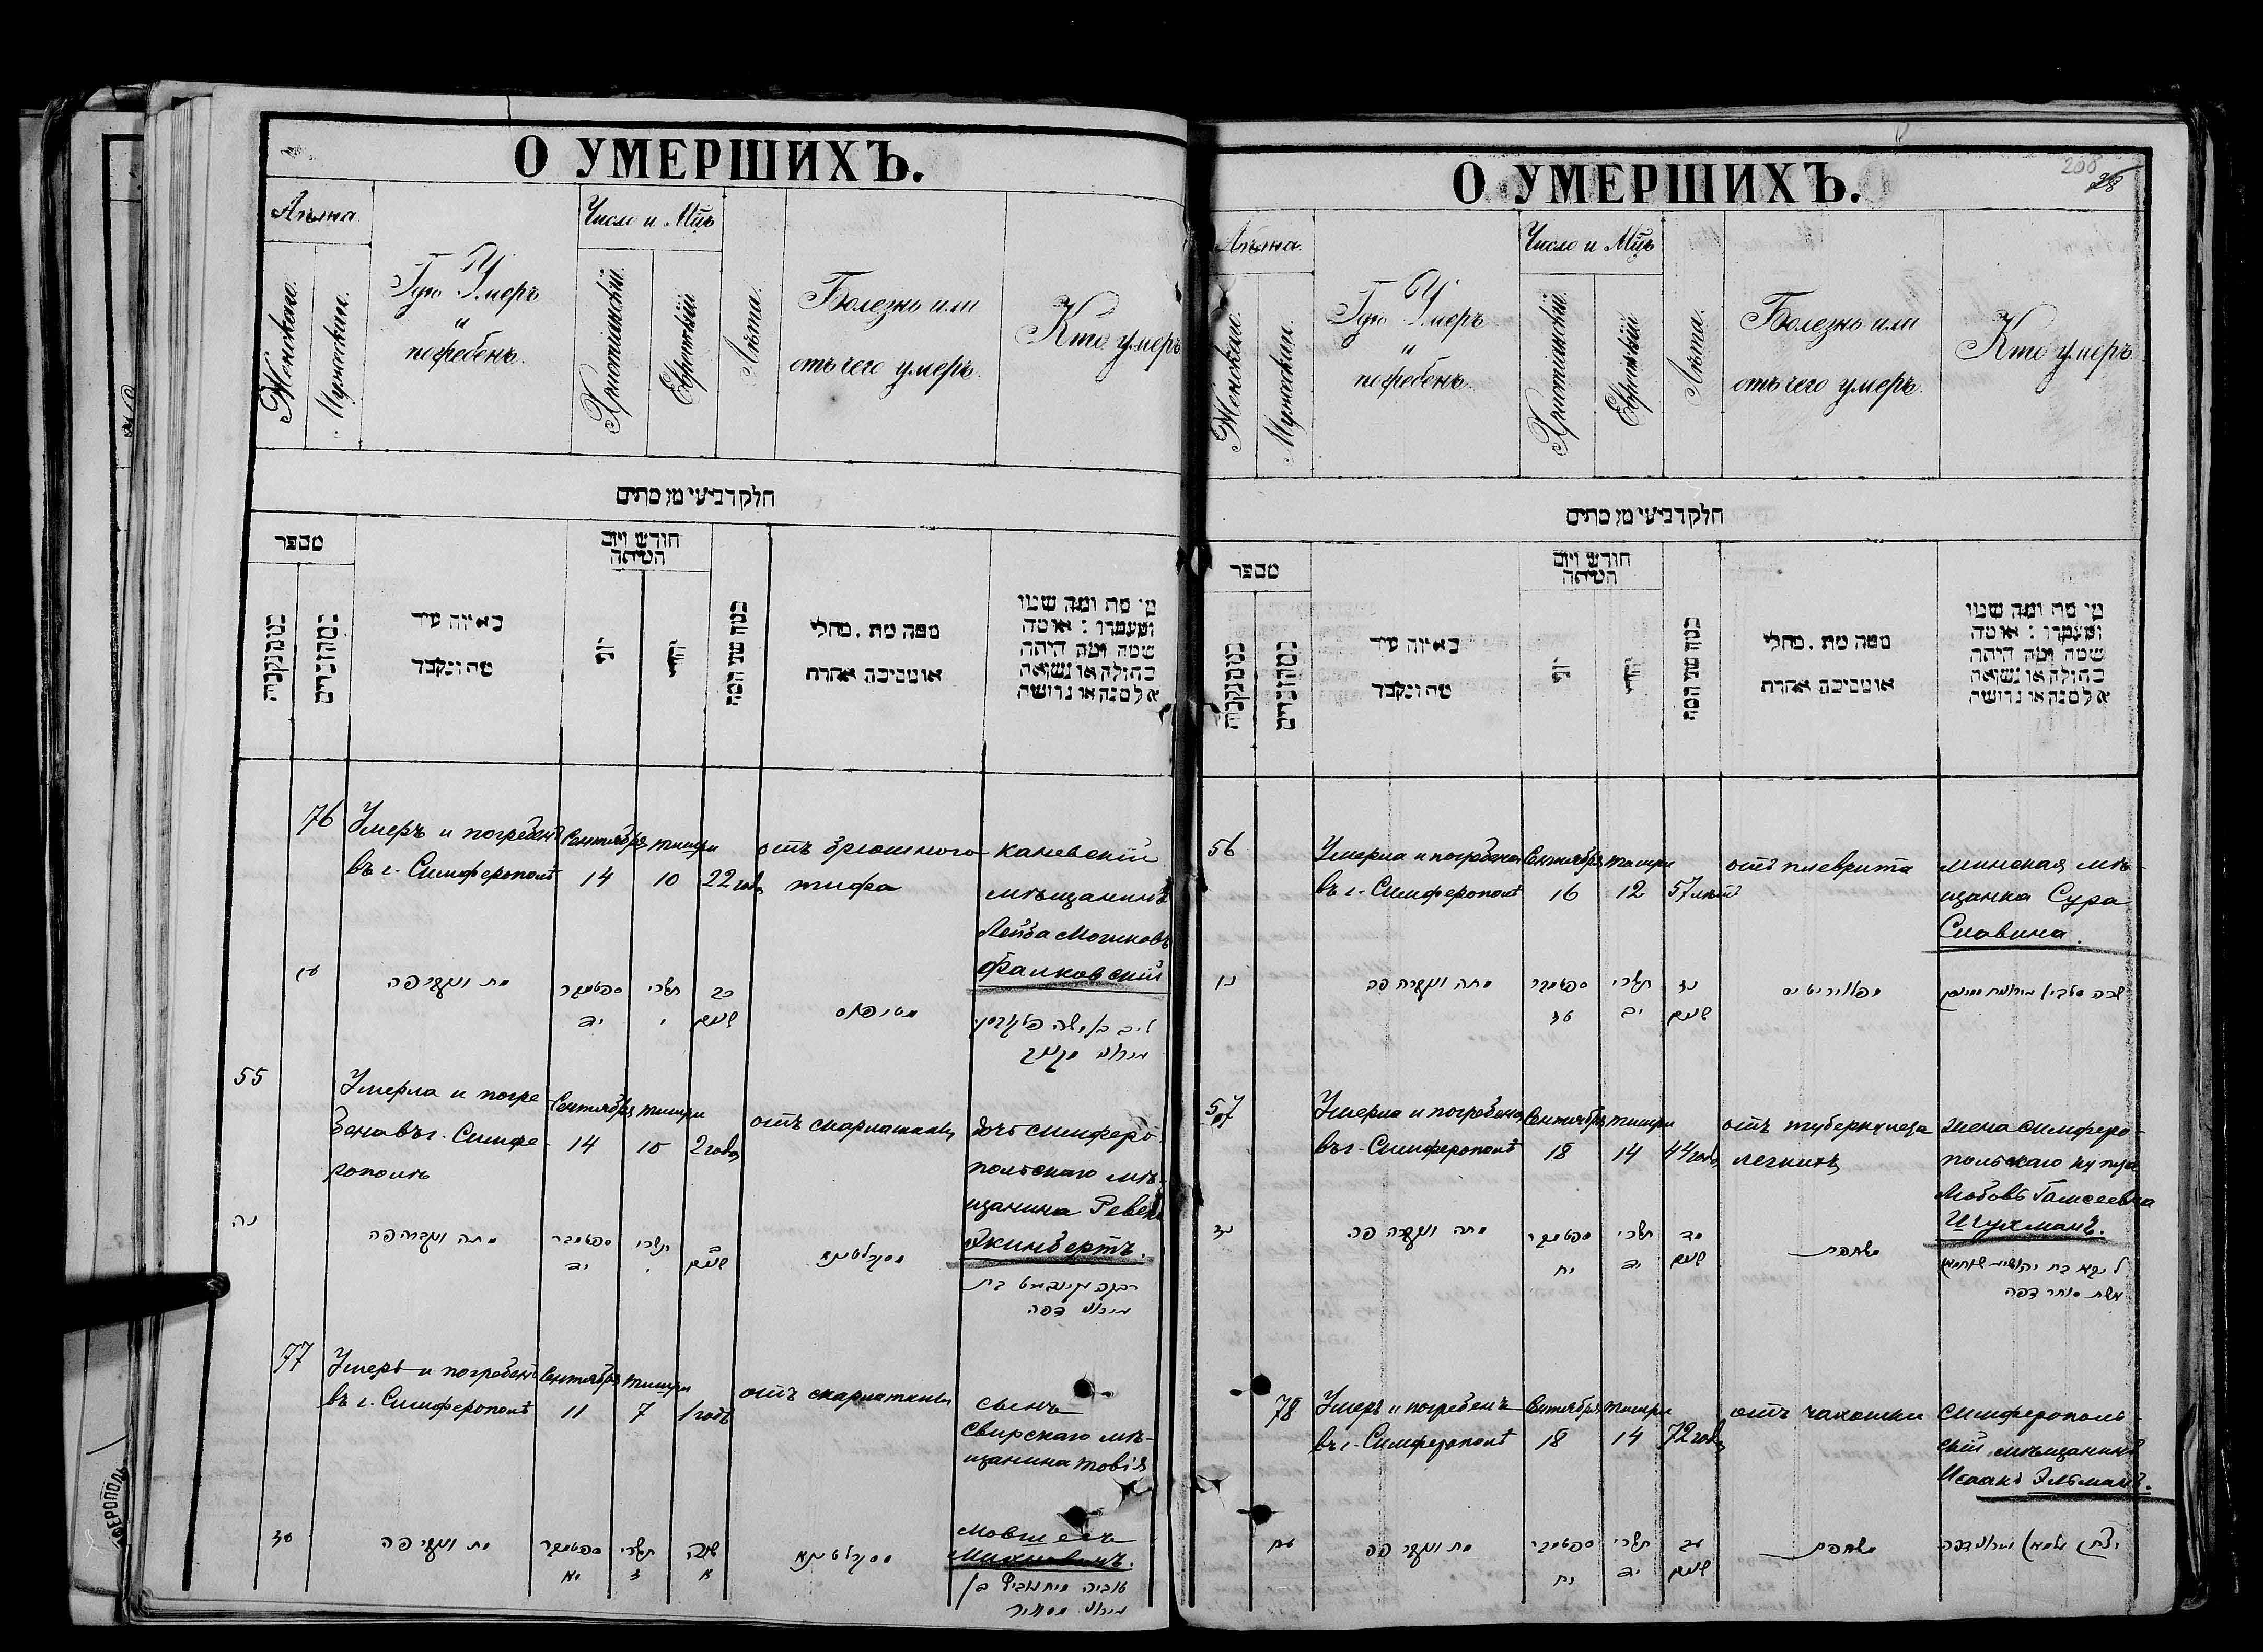 О УМЕРШИХЪ.
Число и Мцъ
Женскаго.
Мужескаго.
Гдѣ Умеръ
и
погребенъ.
Христіанскій.
Еврейскій
Лѣта.
Болезнь или
отъ чего умеръ.
Кто умеръ
חלק רביעי מן מתים
מספר
חודש ויום
המיתה
באיזה עיר
מת ונקבר
ממה מת . מחלי
או מסיבה אחרת
מי מת ומה שמו
ומעמדו : או מה
שמה ומה היתה
בתולה או נשואה
אלמנה או גרושה
76
Умеръ и погребенъ
въ г. Симферополѣ
Сентября
14
Тишри
10
22 года
отъ брюшного
тифа
каневскій
мѣщанинъ
Лейба Мошковъ
Фалковскій
מת ונקבר פה
ספטמבר
יד
תשרי
י
כב
שנים
55
Умерла и погре-
бена въ г. Симфе-
рополѣ
Сентября
14
Тишри
10
2 года
отъ скарлатины
дочь симферо-
польскаго мѣ-
щанина Ревека
Экинбертъ.
נה
מתה ונקברה פה
ספטמבר
יד
תשרי
י
ב
שנים
77
Умеръ и погребенъ
въ г. Симферополѣ
Сентября
11
Тишри
7
1 годъ
отъ скарлатины
сынъ
Свирскаго мѣ-
щанина Товія
Мовшевъ
עז
מת ונקבר פה
ספטמבר
יא
תשרי
ז
שנה
א
О УМЕРШИХЪ.
268
Число и Мцъ
Женскаго.
Мужескаго.
Гдѣ Умеръ
и
погребенъ.
Христіанскій.
Еврейскій
Лѣта.
Болезнь или
отъ чего умеръ.
Кто умеръ
חלק רביעי מן מתים
מספר
חודש ויום
המיתה
באיזה עיר
מת ונקבר
ממה מת . מחלי
או מסיבה אחרת
מי מת ומה שמו
ומעמדו : או מה
שמה ומה היתה
בתולה או נשואה
אלמנה או גרושה
56
Умерла и погребена
въ г. Симферополѣ
Сентября
16
Тишри
12
57 лѣтъ
отъ плеврита
минская мѣ-
щанка Сура
Славина.
נו
מתה ונקברה פה
ספטמבר
טז
תשרי
יב
נז
שנים
57
Умерла и погребена
въ г. Симферополѣ
Сентября
18
Тишри
14
44 года
отъ туберкулеза
легкихъ
жена симферо-
польскаго купца
Любовь
Шухманъ.
נז
מתה ונקברה פה
ספטמבר
יח
תשרי
יד
מד
שנים
משחפת
אשת סוחר דפה
78
Умеръ и погребенъ
въ г. Симферополѣ
Сентября
18
Тишри
14
72 года
отъ чахотки
симферополь-
скій мѣщанинъ
Исаакъ Эльманъ.
עח
מת ונקבר פה
ספטמבר
יח
תשרי
יד
עב
שנים
משחפת